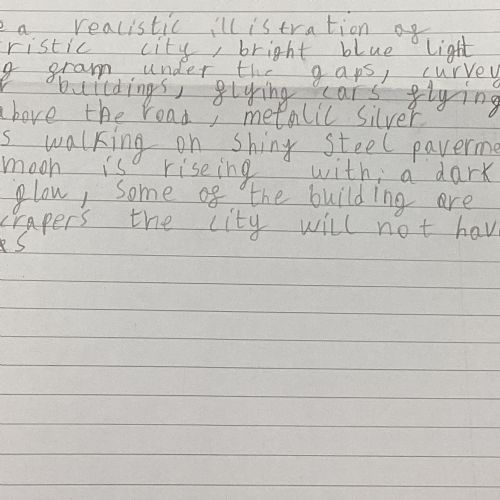 a realistic illistration of
ristic city, bright blue light
g gram under the gaps, curvey
buildings, flying cars flying
above the road, metalic silver
s walking on shiny steel paverme
moon is riseing with, a dark
glow, some of the building are
crapers the city will not hav